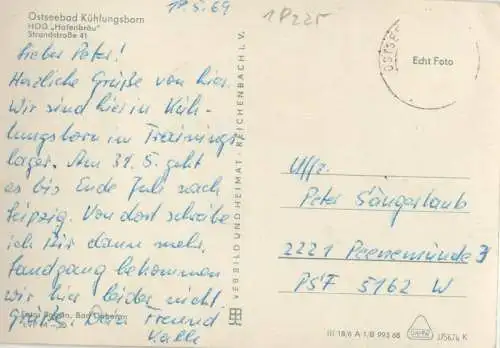 18.5.69
1P225
Ostseebad Kühlungsborn
HOG „Hafenbräu"
Strandstraße 41
Lieber Peter!
Herzliche Grüße von hier.
Wir sind hier in Küh-
lungsborn im Trainings-
lager. Am 31.5. geht
es bis Ende Juli nach
Leipzig. Von dort schreibe
ich Dir dann mehr.
Landgang bekommen
wir hier leider nicht.
Grüße Dein Freund
Kalle
Bad Doberan
VEB BILD UND HEIMAT · REICHENBACH I. V.
OSTSEE
Echt Foto
Uffz.
Peter Sängerlaub
2221 Peenemünde 3
PSF 5162 W
III 18/6 A 1/B 993 68